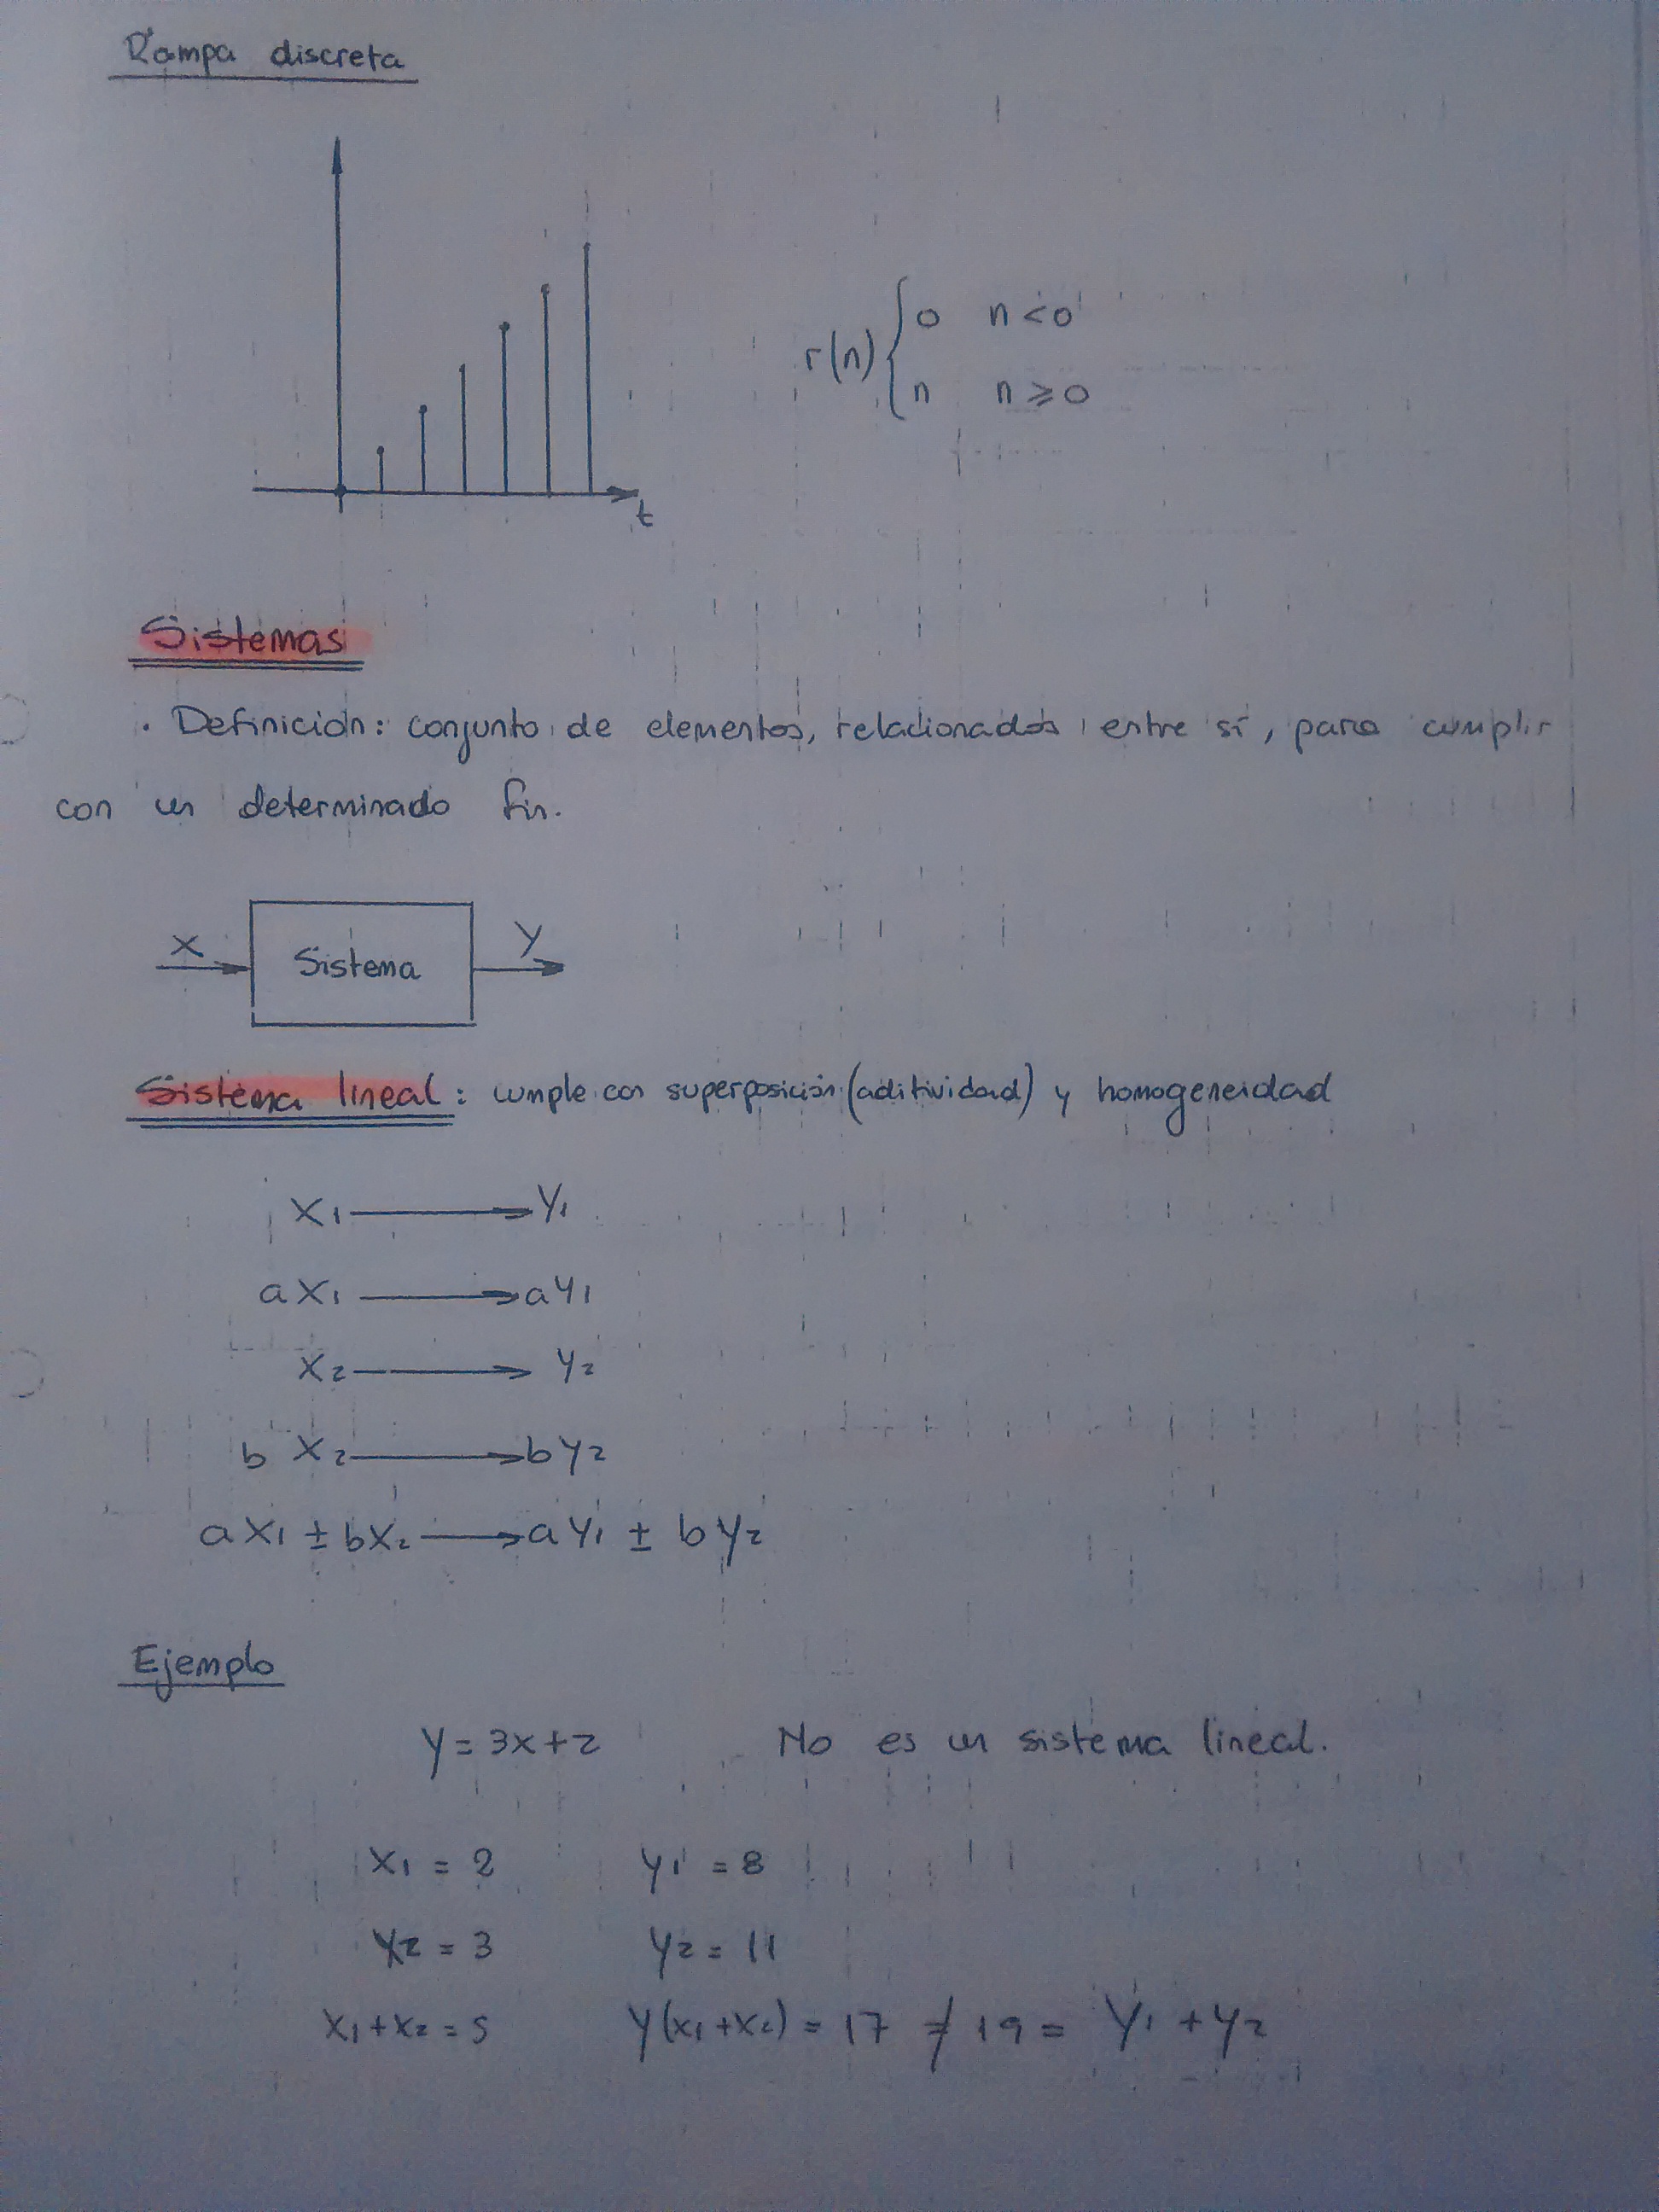 Rampa discreta
r(n) { 0 n < 0
n n ≥ 0
t
Sistemas
· Definición: conjunto de elementos, relacionados entre sí, para cumplir
con un determinado fin.
x Sistema y
Sistema lineal: cumple con superposición (aditividad) y homogeneidad
x₁ → y₁
a x₁ → a y₁
x₂ → y₂
b x₂ → b y₂
a x₁ ± b x₂ → a y₁ ± b y₂
Ejemplo
y = 3x + 2 No es un sistema lineal.
x₁ = 2 y₁ = 8
x₂ = 3 y₂ = 11
x₁ + x₂ = 5 y(x₁ + x₂) = 17 ≠ 19 = y₁ + y₂